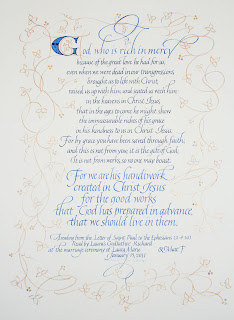 God, who is rich in mercy
because of the great love he had for us,
even when we were dead in our transgressions,
brought us to life with Christ,
raised us up with him, and seated us with him
in the heavens in Christ Jesus,
that in the ages to come he might show
the immeasurable riches of his grace
in his kindness to us in Christ Jesus.
For by grace you have been saved through faith,
and this is not from you; it is the gift of God;
it is not from works, so no one may boast.
For we are his handiwork
created in Christ Jesus
for the good works
that God has prepared in advance,
that we should live in them.
Reading from the Letter of Saint Paul to the Ephesians
Read by Laura's Godfather Richard
at the marriage ceremony of Laura Marie & Matt F
January 15, 2011